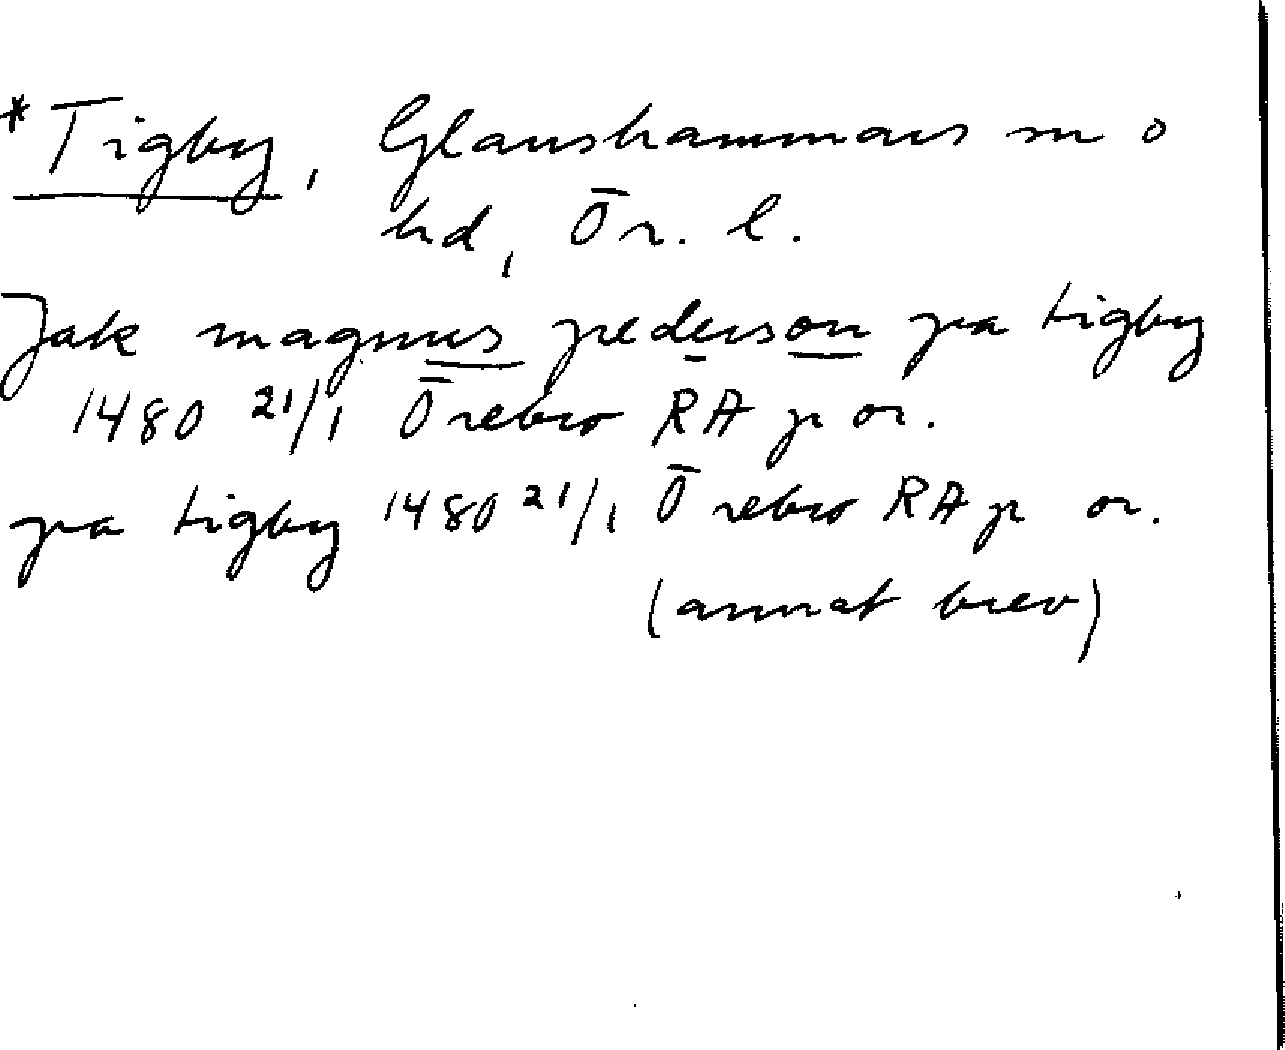 * Tigby, Glanshammars sn o
hd, Ör. l.
Jak magnus pederson pa tigby
1480 21/1 Örebro RA p or.
pa tigby 1480 21/1 Örebro RA p or.
(annat brev)